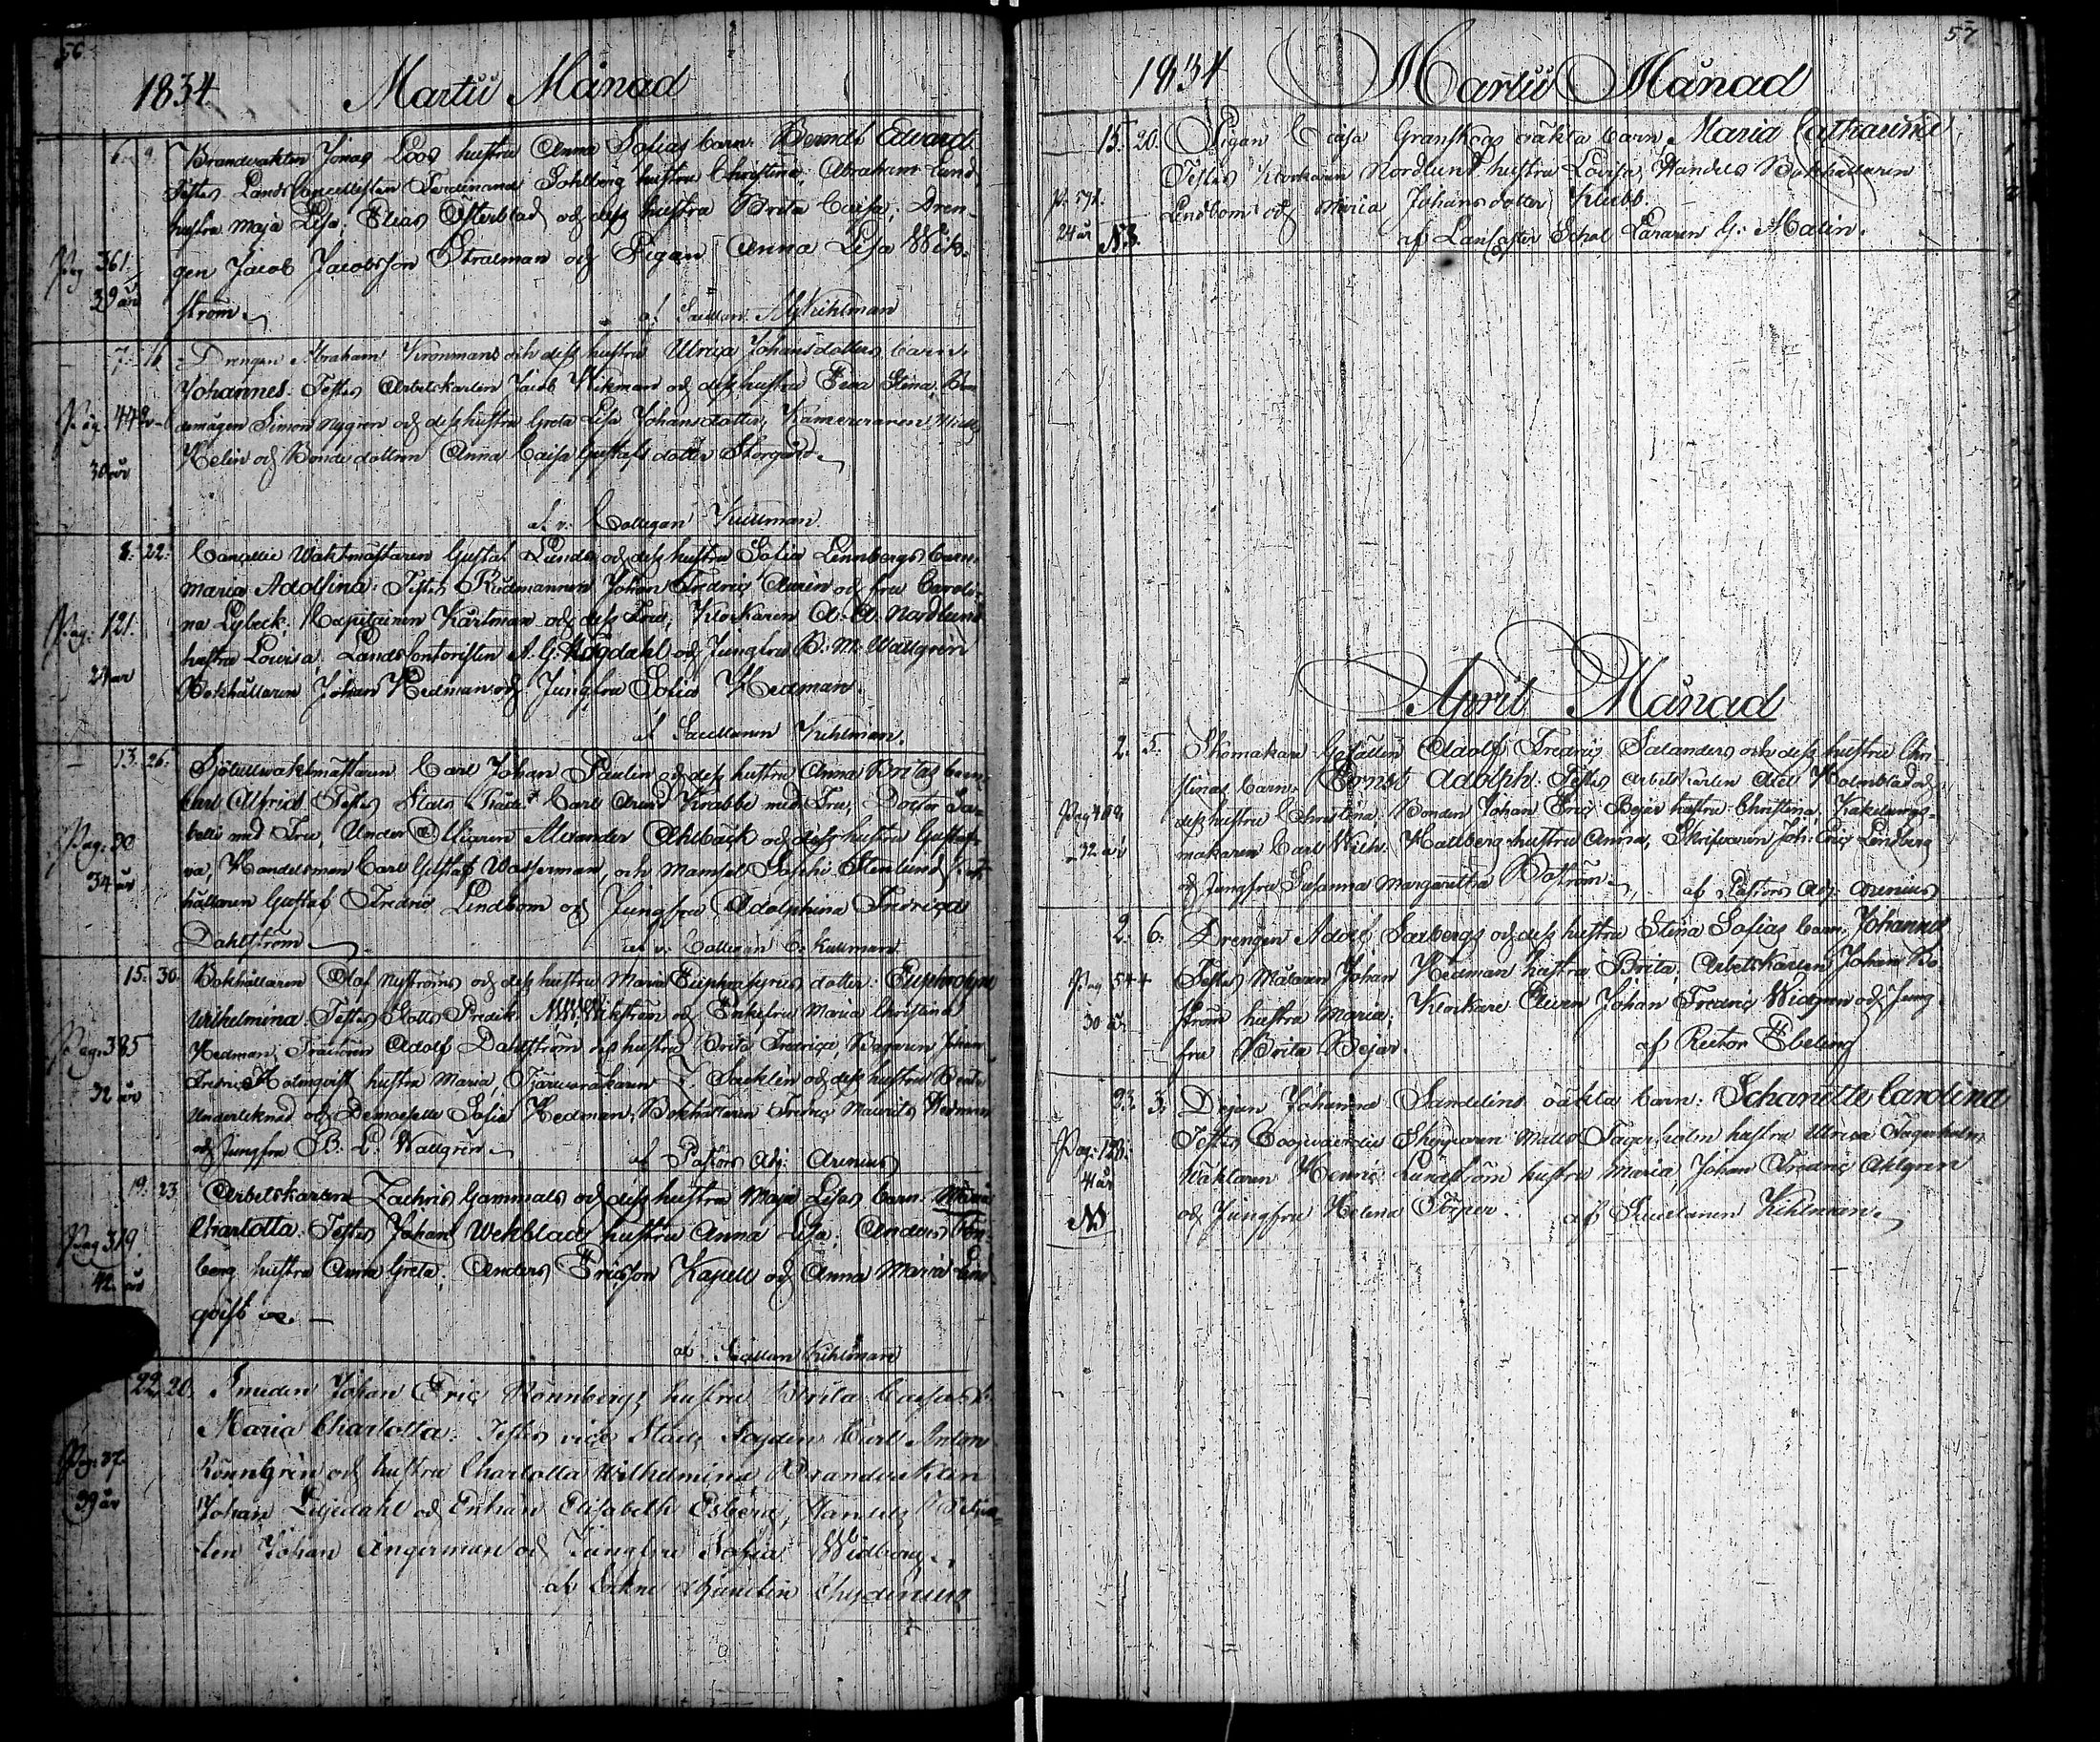 56
1834. Martii Månad
6. 9. Brandvakten Jonas Loos hustru Anna Sofias barn: Berndt Edvard.
Testes LandsCancellisten Ferdinand Sohlberg hustru Christina; Abraham Lund
hustru Maja Lisa; Elias Österblad och dess hustru Brita Caisa; Dren-
Pag 361. gen Jacob Jacobsson Stralman och Pigan Anna Lisa Wik-
39 år ström. af Sacellan. Kihlman
7. 16 Drengen Abraham Kronmans och dess hustru Ulrica Johansdotters barn:
Johannes. Testes Arbetskarlen Jacob Wikman och dess hustru Eva Stina; Bon-
Pag. 442 demågen Simon Nygren och dess hustru Greta Lisa Johansdotter, Kamereraren
30 år Helin och Bondedottren Anna Caisa Gustafsdotter Storgård.
af v. Collegan Kullman
8. 22. Cancellie Waktmästaren Gustaf Lunds och dess hustru Sofia Lennbergs barn:
Maria Adolfina: Testes Rådmannen Johan Fredric Aurén och fru Caroli-
Pag: 121. na Lybeck; Kapitainen Kårtman och dess Fru; Klockaren A. A. Nordlund
hustru Lovisa. Landscontoristen A. G. Högdahl och Jungfru B. M. Wallgrén
29 år Bokhållaren Johan Hedman och Jungfru Sofia Hedman.
af Sacellanen Kihlman.
13. 26. Sjötullwaktmästaren Carl Johan Paulin och dess hustru Anna Britas barn:
Carl Alfrid Testes Stats Rådet Carl Arvid Krabbe med Fru, Doctor
Pag: 90 med Fru, Under Officeren Alexander Ahlbäck och dess hustru Gusta-
34 år va, Handelsman Carl Gustaf Wasserman, och Mamsel Sophi Stenlund, Bok-
hållaren Gustaf Fredric Lindbom och Jungfru Adolphina Fredrica
Dahlström af v. Collegan C. Kullman
15. 30. Bokhållaren Olof Nyströms och dess hustru Maria Euphrosyne
Wilhelmina: Testes Slotts Predik. Wikström och Enkefru Maria Christina
Pag: 385 Hedman; Traktören Adolf Dahlström och hustru Brita Fredrica, Bagaren Johan
Fredric Holmqvist hustru Maria, Tjäruvräkaren J. Sacklén och dess hustru
32 år Underteknad och Demoiselle Sofia Hedman, Bokhållaren Fredric Maurits Hedman
och Jungfru B. C. Wallgrén. af Pastors Adj: Arenius
19. 23 Arbetskarlen Zachris Gammals och dess hustru Maja Lisas barn: Maria
Charlotta: Testes Johan Wehblad hustru Anna Lisa; Anders
Pag 319. berg hustru Anna Greta; Anders Ericsson Kapell och Anna Maria Lind-
42 år qvist
af Sacellan Kihlman
22. 20. Smeden Johan Eric Rönnbergs hustru Brita Caisas
Maria Charlotta: Testes vice Stads Fogden Carl Anton
Pag: 37. Rönngrén och hustru Charlotta Wilhelmina Brandvakten
39 år Johan Liljedahl och Enkan Elisabeth Esbjörn, Handels Betjen-
ten Johan Ångerman och Jungfru Sofia Widberg.
af Sockne Adjuncten Chydenius
57
1834 Martii Månad
15. 20. Pigan Caisa Granskogs oäkta barn: Maria Catharina
Testes Klockaren Nordlund hustru Lovisa, Handels Bokhållaren
P. 591. Lindbom och Maria Johansdotter Klubb.
24 år N.B. af Lancaster Schol Läraren G: Malin.
April Månad
2. 5. Skomakare Gesällen Adolf Fredric Salanders och dess hustru Chri-
stinas barn: Ernst Adolph: Testes Arbetskarlen Axel Holmblad och
dess hustru Christina, Bonden Johan Eric Bejar hustru Christina, Kakelugns-
32 år makaren Carl Wilh. Hallberg hustru Anna, Skrifvaren Joh: Eric Lindberg
och Jungfru Susanna Margaretha Boström. af Pastors Adj: Arenius
2. 6. Drengen Adolf Saxbergs och dess hustru Stina Sofias barn: Johanna
Pag 544 Testes Målaren Johan Hedman hustru Brita; Arbetskarlen Johan Bo-
30 år ström hustru Maria; Klockare Eleven Johan Fredric Widgren och Jung-
fru Brita Bejar. af Rector Ebeling
23. 3. Dejan Johanna Sandelins oäkta barn: Schanette Carolina
Pag: 128. Testes Coopvaerdie Skepparen Matts Fagerholm hustru Ulrica Fagerholm
41 år Wäktaren Henric Lundström hustru Maria, Johan Fredric Ahlgren
NB och Jungfru Helena Töyer. af Sacellanen Kihlman.